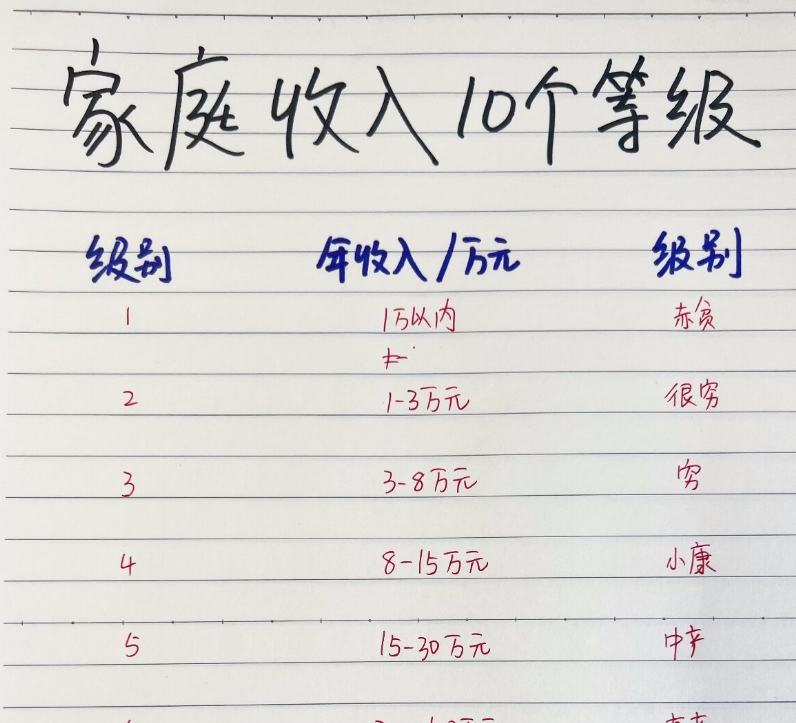 家庭收入10个等级
级别 年收入/万元 级别
1 1万以内 赤贫
2 1-3万元 很穷
3 3-8万元 穷
4 8-15万元 小康
5 15-30万元 中产